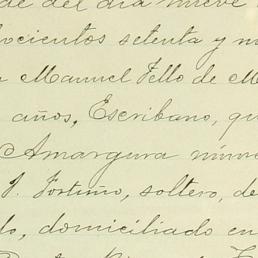 de del dia nueve
ocientos setenta y nu
Manuel Tello de M
años, Escribano, qu
Amargura núme
J. Fortuño, soltero, de
do, domiciliado en